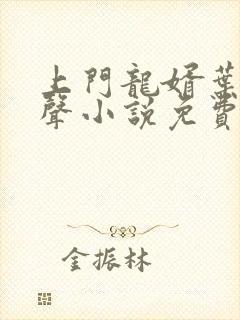 上門龍婿葉
聲小說免費
金振林